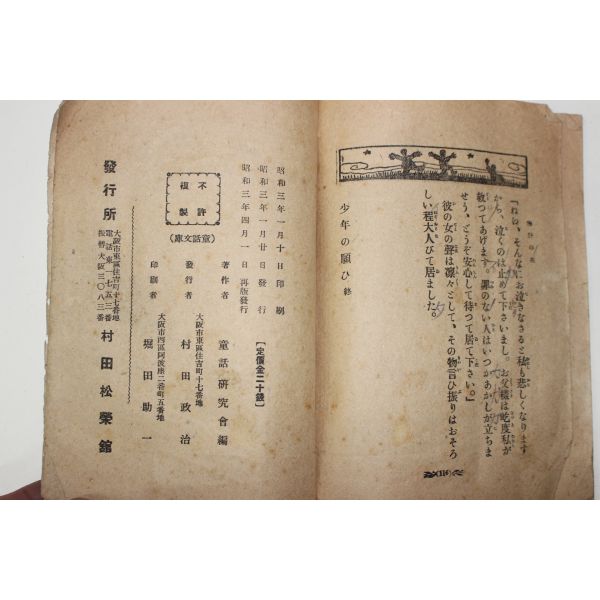 「ねね、そんなにお泣きなさると私も悲しくなります
から、泣くのは止めて下さいまし。お父樣は屹度私が
救つてあげます。罪のない人はいつかあかしが立ちま
せう、どうぞ安心して待つて居て下さい。」
彼の女の聲は凛々として、その物言ひ振りはおそろ
しい程大人びて居ました。
少年の願ひ 終
(116)
昭和三年一月十日印刷
昭和三年一月廿日發行
昭和三年四月一日再版發行
【定價金二十錢】
不許
複製
(童話文庫)
著作者 童話研究會編
大阪市東區住吉町十七番地
發行者 村田政治
大阪市西區阿波座二番町五番地
印刷者 堀田助一
發行所
大阪市東區住吉町十七番地
電話東七五三番
振替大阪三〇八三番
村田松榮舘